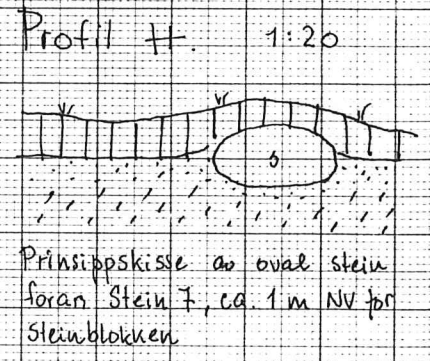 Profil H. 1:20
Prinsippskisse av oval stein
foran Stein 7, ca. 1 m NV for
Steinblokken